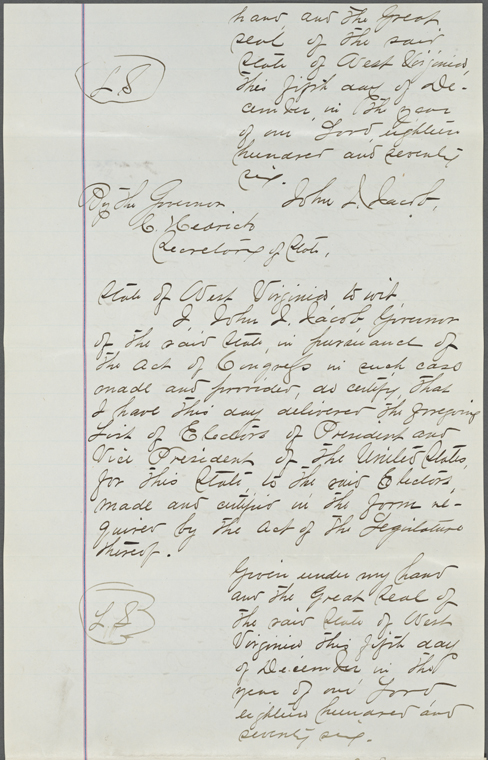 hand and the Great
seal of the said
State of West Virginia,
this fifth day of De-
L.S.
cember, in the year
of our Lord eighteen
hundred and seventy
six.
By the Governor John J. Jacob,
C. Hedrick
Secretary of State,
State of West Virginia to wit,
I John J. Jacob, Governor
of the said State, in pursuance of
the act of Congress in such case
made and provided, do certify, that
I have this day delivered the foregoing
List of Electors of President and
Vice President of the United States,
for this State, to the said Electors,
made and certified in the form re-
quired by the act of the Legislature
thereof.
Given under my hand
and the Great Seal of
L.S.
the said State of West
Virginia this fifth day
of December in the
year of our Lord
eighteen hundred and
seventy six.